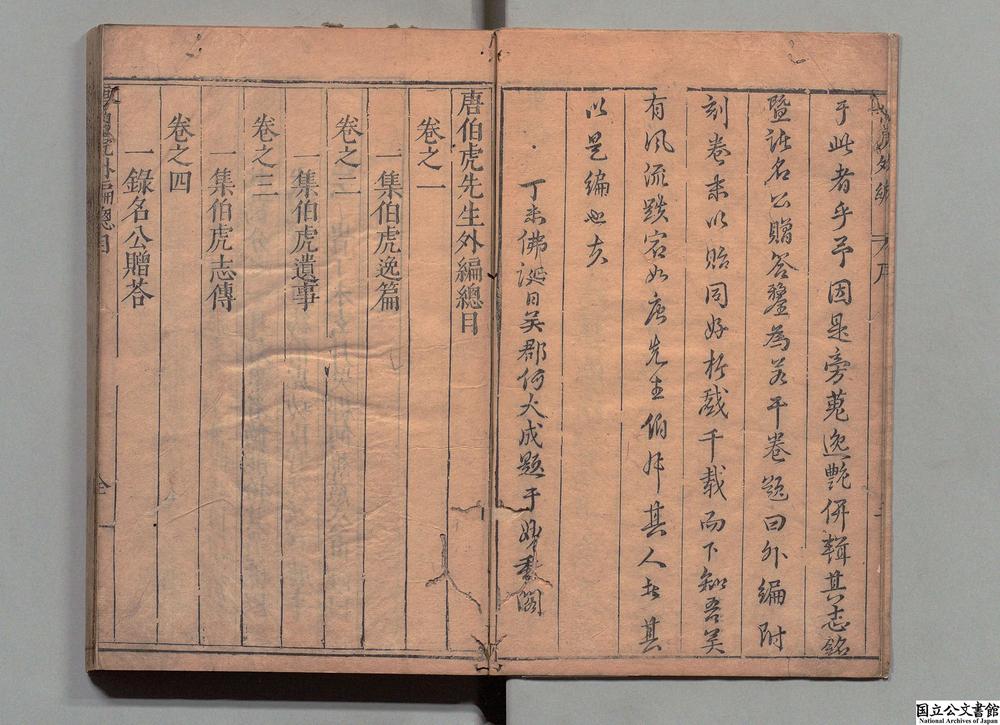 于此者乎予因是旁蒐逸艷併輯其志銘
暨諸名公贈答釐為若干卷題曰外編附
刻卷末以貽同好於戲千載而下知吾吴
有風流跌宕如唐先生伯虎其人者其
以是編也夫
丁未佛誕日吴郡何大成題于妙香閣
唐伯虎先生外編總目
卷之一
一集伯虎逸篇
卷之二
一集伯虎遺事
卷之三
一集伯虎志傳
卷之四
一錄名公贈荅
外編總目
国立公文書館
National Archives of Japan